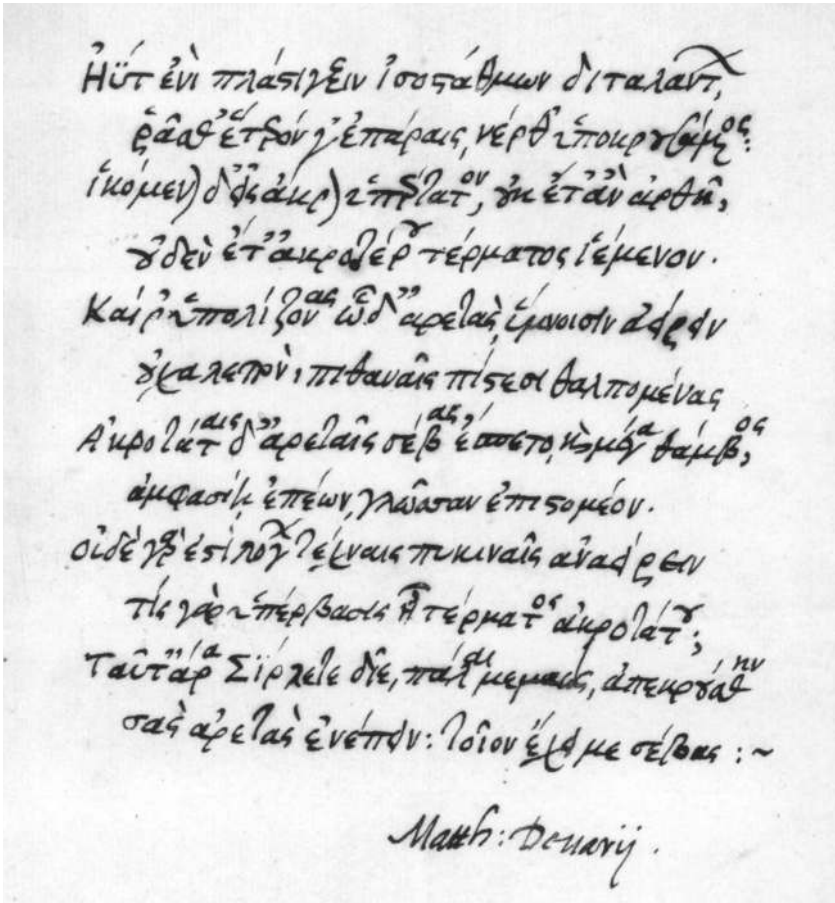 Ἠΰτ' ἐνὶ πλάστιγξιν ἰσοστάθμων διταλάντων,
ῥᾶσθ' ἕτερόν γ' ἐπάραις, νέρθ' ὑποκρυβόμενος:
ἱκόμενον δ' εἰς ἄκρον ὑπέρτατον, οὐκ ἔτ' ἂν ἀρθῇ,
οὐδὲν ἔτ' ἀκροτέρου τέρματος ἱέμενον.
Καί ῥ' ὑπολίζονας ὧδ' ἀρετὰς ὕμνοισιν ἀείρειν
οὐ χαλεπὸν, πιθαναῖς πίστεσι θαλπομένας
Ἀκροτάταις δ' ἀρεταῖς σέβας ἕσπετο, καὶ μέγα θάμβος,
ἀμφασίῃ ἐπέων γλῶσσαν ἐπιστομέον.
γὰρ ἐστὶ λόγων τέχναις πυκιναῖς ἀναείρειν
τίς γὰρ ὑπέρβασις ᾖ τέρματος ἀκροτάτου;
Ταῦτ' ἄρα Σίρλετε δῖε, πάλαι μεμαὼς, ἀπεκρούσθην
σὰς ἀρετὰς ἐνέπειν: τοῖον με σέβας :~
Matth: Devarij.